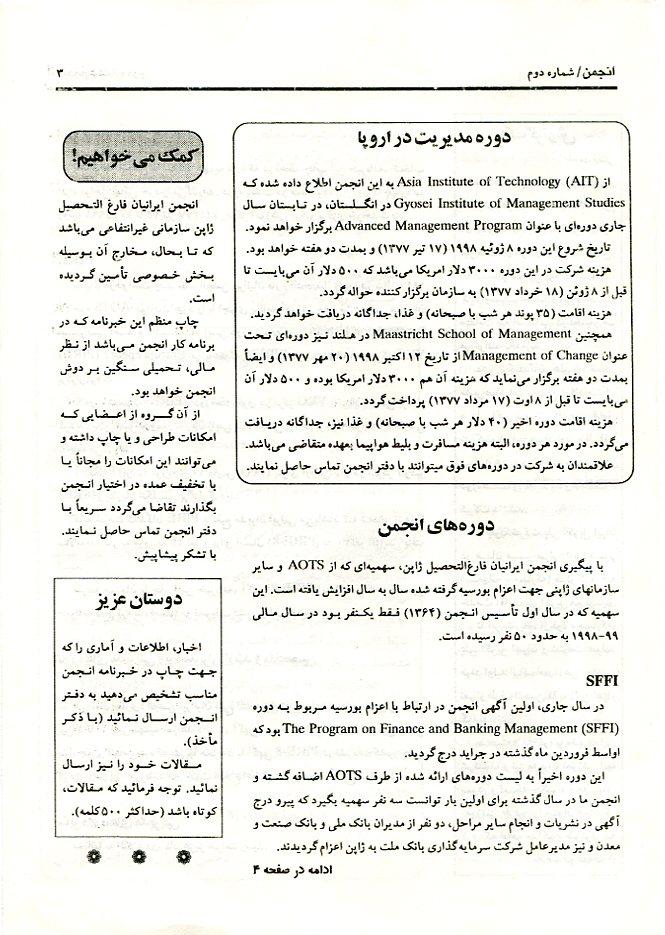 انجمن/ شماره دوم
۳
دوره مدیریت در اروپا
از Asia Institute of Technology (AIT) به این انجمن اطلاع داده شده که
Gyosei Institute of Management Studies در انگلستان، در تابستان سال
جاری دوره‌ای با عنوان Advanced Management Program برگزار خواهد نمود.
تاریخ شروع این دوره ۸ ژوئیه ۱۹۹۸ (۱۷ تیر ۱۳۷۷) و بمدت دو هفته خواهد بود.
هزینه شرکت در این دوره ۳۰۰۰ دلار امریکا می‌باشد که ۵۰۰ دلار آن می‌بایست تا
قبل از ۸ ژوئن (۱۸ خرداد ۱۳۷۷) به سازمان برگزار کننده حواله گردد.
هزینه اقامت (۳۵ پوند هر شب با صبحانه) و غذا، جداگانه دریافت خواهد گردید.
همچنین Maastricht School of Management در هلند نیز دوره‌ای تحت
عنوان Management of Change از تاریخ ۱۲ اکتبر ۱۹۹۸ (۲۰ مهر ۱۳۷۷) و ایضاً
بمدت دو هفته برگزار می‌نماید که هزینه آن هم ۳۰۰۰ دلار امریکا بوده و ۵۰۰ دلار آن
می‌بایست تا قبل از ۸ اوت (۱۷ مرداد ۱۳۷۷) پرداخت گردد.
هزینه اقامت دوره اخیر (۴۰ دلار هر شب با صبحانه) و غذا نیز، جداگانه دریافت
می‌گردد. در مورد هر دوره، البته هزینه مسافرت و بلیط هواپیما بعهده متقاضی می‌باشد.
علاقمندان به شرکت در دوره‌های فوق میتوانند با دفتر انجمن تماس حاصل نمایند.
دوره‌های انجمن
با پیگیری انجمن ایرانیان فارغ‌التحصیل ژاپن، سهمیه‌ای که از AOTS و سایر
سازمانهای ژاپنی جهت اعزام بورسیه گرفته شده سال به سال افزایش یافته است. این
سهمیه که در سال اول تأسیس انجمن (۱۳۶۴) فقط یکنفر بود در سال مالی
۹۹-۱۹۹۸ به حدود ۵۰ نفر رسیده است.
SFFI
در سال جاری، اولین آگهی انجمن در ارتباط با اعزام بورسیه مربوط به دوره
The Program on Finance and Banking Management (SFFI) بود که
اواسط فروردین ماه گذشته در جراید درج گردید.
این دوره اخیراً به لیست دوره‌های ارائه شده از طرف AOTS اضافه گشته و
انجمن ما در سال گذشته برای اولین بار توانست سه نفر سهمیه بگیرد که پیرو درج
آگهی در نشریات و انجام سایر مراحل، دو نفر از مدیران بانک ملی و بانک صنعت و
معدن و نیز مدیرعامل شرکت سرمایه‌گذاری بانک ملت به ژاپن اعزام گردیدند.
ادامه در صفحه ۴
کمک می خواهیم!
انجمن ایرانیان فارغ التحصیل
ژاپن سازمانی غیرانتفاعی می‌باشد
که تا بحال، مخارج آن بوسیله
بخش خصوصی تأمین گردیده
است.
چاپ منظم این خبرنامه که در
برنامه کار انجمن می‌باشد از نظر
مالی، تحمیلی سنگین بر دوش
انجمن خواهد بود.
از آن گروه از اعضایی که
امکانات طراحی و یا چاپ داشته و
می‌توانند این امکانات را مجاناً یا
با تخفیف عمده در اختیار انجمن
بگذارند تقاضا می‌گردد سریعاً با
دفتر انجمن تماس حاصل نمایند.
با تشکر پیشاپیش.
دوستان عزیز
اخبار، اطلاعات و آماری را که
جهت چاپ در خبرنامه انجمن
مناسب تشخیص می‌دهید به دفتر
انجمن ارسال نمائید (با ذکر
مأخذ).
مقالات خود را نیز ارسال
نمائید. توجه فرمائید که مقالات،
کوتاه باشد (حداکثر ۵۰۰ کلمه).